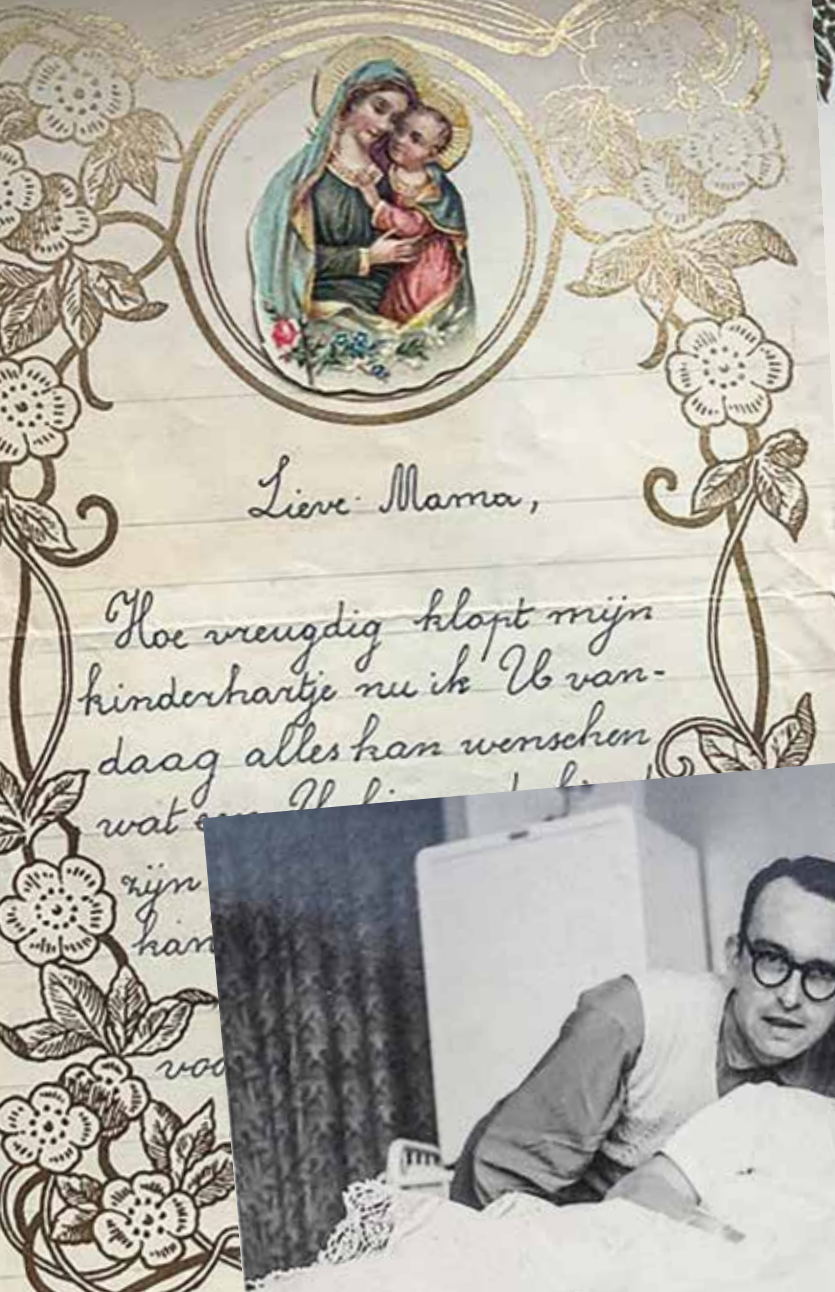 Lieve Mama,
Hoe vreugdig klopt mijn
kinderhartje nu ik U van-
daag alles kan wenschen
wat
zijn
kan